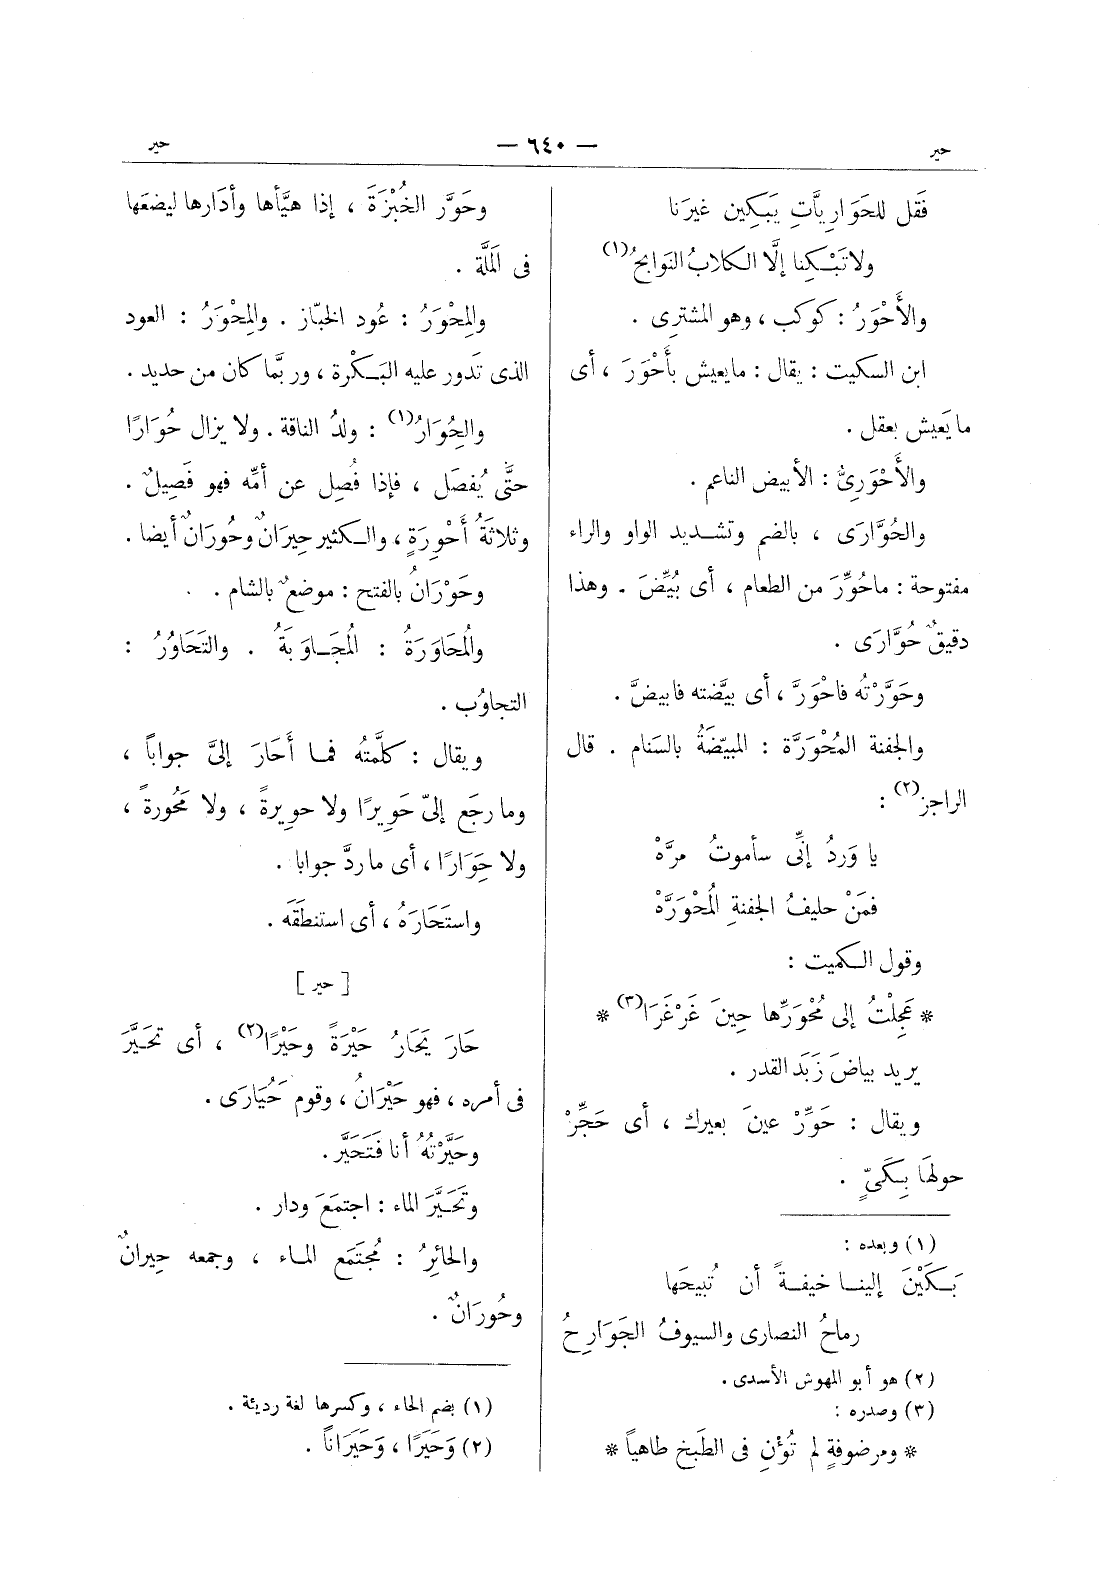 حير — ٦٤٠ — حير
فَقل للحَوَارِيَّاتِ يَبكِين غيرَنا
ولا تَبْكِنا إلَّا الكلابُ النَوابحُ(١)
والأَحْوَرُ : كوكب ، وهو المشترِى .
ابن السكيت : يقال : ما يعيش بأَحْوَرَ ، أى
ما يَعيش بعقل .
والأَحْوَرِىُّ : الأبيض الناعم .
والحُوَّارَى ، بالضم وتشديد الواو والراء
مفتوحة : ما حُوِّرَ من الطعام ، أى بُيِّضَ . وهذا
دقيقٌ حُوَّارَى .
وحَوَّرْتُه فاحْوَرَّ ، أى بيَّضته فابيضَّ .
والجفنة المُحْوَرَّة : المبيّضَةُ بالسَنام . قال
الراجز(٢) :
يا وَردُ إنِّى سأموتُ مرَّهْ
فمَنْ حليفُ الجفنةِ المُحْوَرَّهْ
وقول الكميت :
* عَجِلْتُ إلى مُحْوَرِّها حِينَ غَرْغَرَا(٣) *
يريد بياضَ زَبَد القدر .
ويقال : حَوِّرْ عينَ بعيرك ، أى حَجِّرْ
حولهَا بِكَىٍّ .
(١) وبعده :
بَكَيْنَ إلينا خيفةً أن تُبيحَها
رماحُ النصارى والسيوفُ الجَوَارِحُ
(٢) هو أبو المهوش الأسدى .
(٣) وصدره :
* ومرضوفةٍ لم تُؤْنِ فى الطَبخ طاهياً *
وحَوَّر الخُبْزَةَ ، إذا هيَّأها وأدَارها ليضعَها
فى المَلَّة .
والمِحْوَرُ : عُود الخبّاز . والمِحْوَرُ : العود
الذى تَدور عليه البَكْرة ، وربَّما كان من حديد .
والحِوَارُ(١) : ولدُ الناقة . ولا يزال حُوَارًا
حتَّى يُفصَل ، فإذا فُصِل عن أمِّه فهو فَصِيلٌ .
وثلاثَةُ أَحْوِرَةٍ ، والكثير حِيرَانٌ وحُورَانٌ أيضا .
وحَوْرَانُ بالفتح : موضعٌ بالشام .
والمُحَاوَرَةُ : المُجَاوَبَةُ . والتَحَاوُرُ :
التجاوُب .
ويقال : كلَّمتُه فما أَحَارَ إلىَّ جواباً ،
وما رجَع إلىّ حَوِيرًا ولا حويرةً ، ولا مَحُورةً ،
ولا حِوَارًا ، أى ما ردَّ جوابا .
واستَحَارَهُ ، أى استنطَقَه .
[ حير ]
حَارَ يَحَارُ حَيْرَةً وحَيْرًا(٢) ، أى تَحَيَّرَ
فى أمره ، فهو حَيْرَانُ ، وقوم حَُيَارَى .
وحَيَّرْتُهُ أنا فَتَحَيَّر .
وتَحَيَّرَ الماء : اجتمَعَ ودار .
والحائِرُ : مُجتَمَع الماء ، وجمعه حِيرانٌ
وحُورَانٌ .
(١) بضم الحاء ، وكسرها لغة رديئة .
(٢) وَحَيَرًا ، وَحَيَرَاناً .